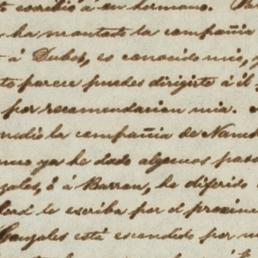 escribió á su hermano. Par
ha montado la compañia
á Dubos, es conocido mio, y
to parece puedes dirigirte á él,
por recomendacion mia.
pedir la compañia de Namd
ya he dado algunos paso
zales, ó á Barron, he diferido
le escriba por el proximo
Gonzales está escondido por